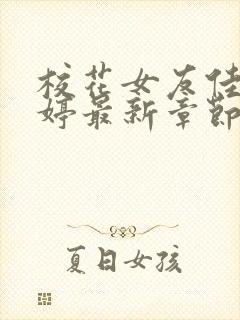 校花女友佳
婷最新章节
夏日女孩